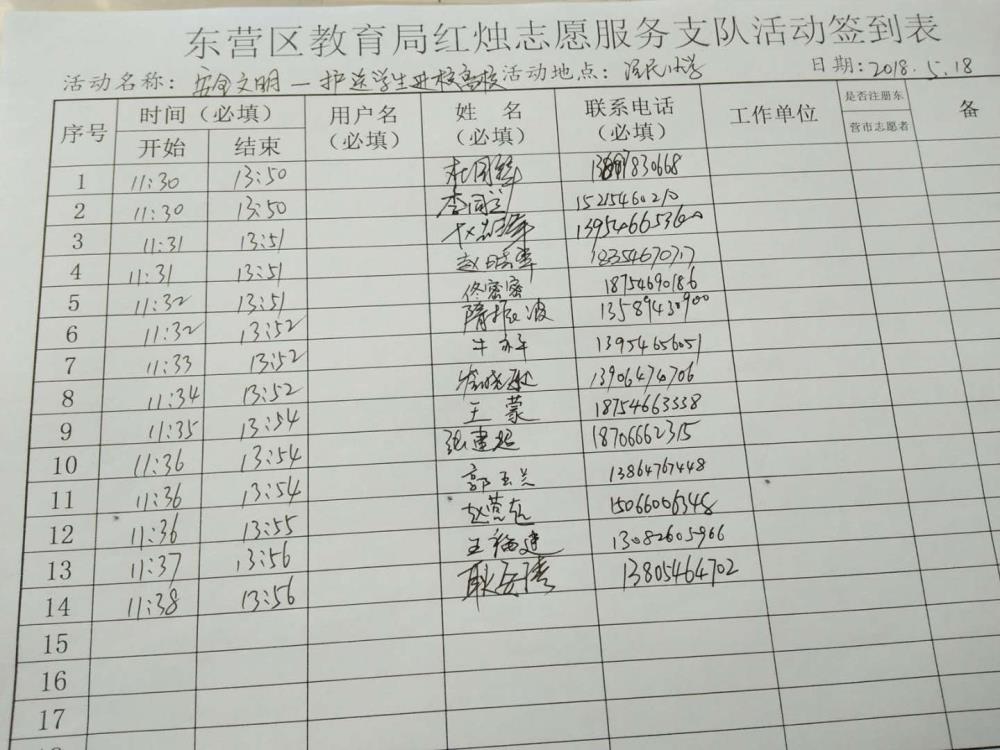 东营区教育局红烛志愿服务支队活动签到表
活动名称：安全文明一护送学生进校离校 活动地点： 日期：2018.5.18
序号 时间（必填） 用户名（必填） 姓名（必填） 联系电话（必填） 工作单位 是否注册东营市志愿者 备
开始 结束
1 11:30 13:50 830668
2 11:30 13:50 李国兰 15215460210
3 11:31 13:51
4 11:31 13:51 赵晓军
5 11:32 13:51 佟密密 18754690186
6 11:32 13:52 隋振波 13589430900
7 11:33 13:52 13954656051
8 11:34 13:52 13906474706
9 11:35 13:54 王蒙 18754663558
10 11:36 13:54 张建超 18706662315
11 11:36 13:54 郭玉兰 13864767448
12 11:36 13:55 15066006348
13 11:37 13:56 王福建 13082605966
14 11:38 13:56 13805464702
15
16
17